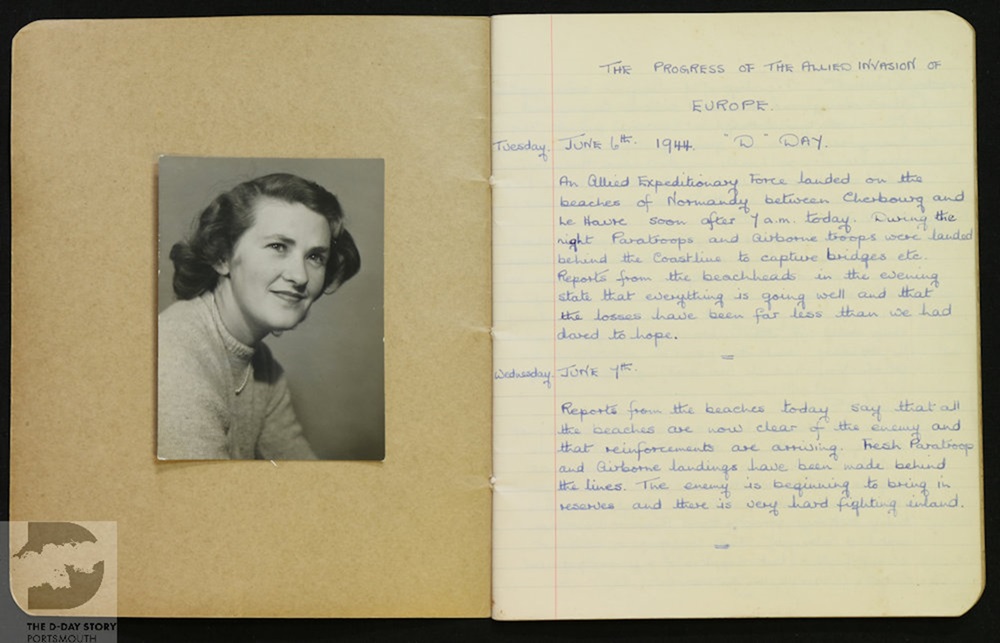 THE PROGRESS OF THE ALLIED INVASION OF
EUROPE.
Tuesday. JUNE 6th. 1944. "D" DAY.
An Allied Expeditionary Force landed on the
beaches of Normandy between Cherbourg and
Le Havre soon after 7 a.m. today. During the
night Paratroops and Airborne troops were landed
behind the Coastline to capture bridges etc.
Reports from the beachheads in the evening
state that everything is going well and that
the losses have been far less than we had
dared to hope.
Wednesday. JUNE 7th.
Reports from the beaches today say that all
the beaches are now clear of the enemy and
that reinforcements are arriving. Fresh Paratroop
and Airborne landings have been made behind
the lines. The enemy is beginning to bring in
reserves and there is very hard fighting inland.
THE D-DAY STORY
PORTSMOUTH